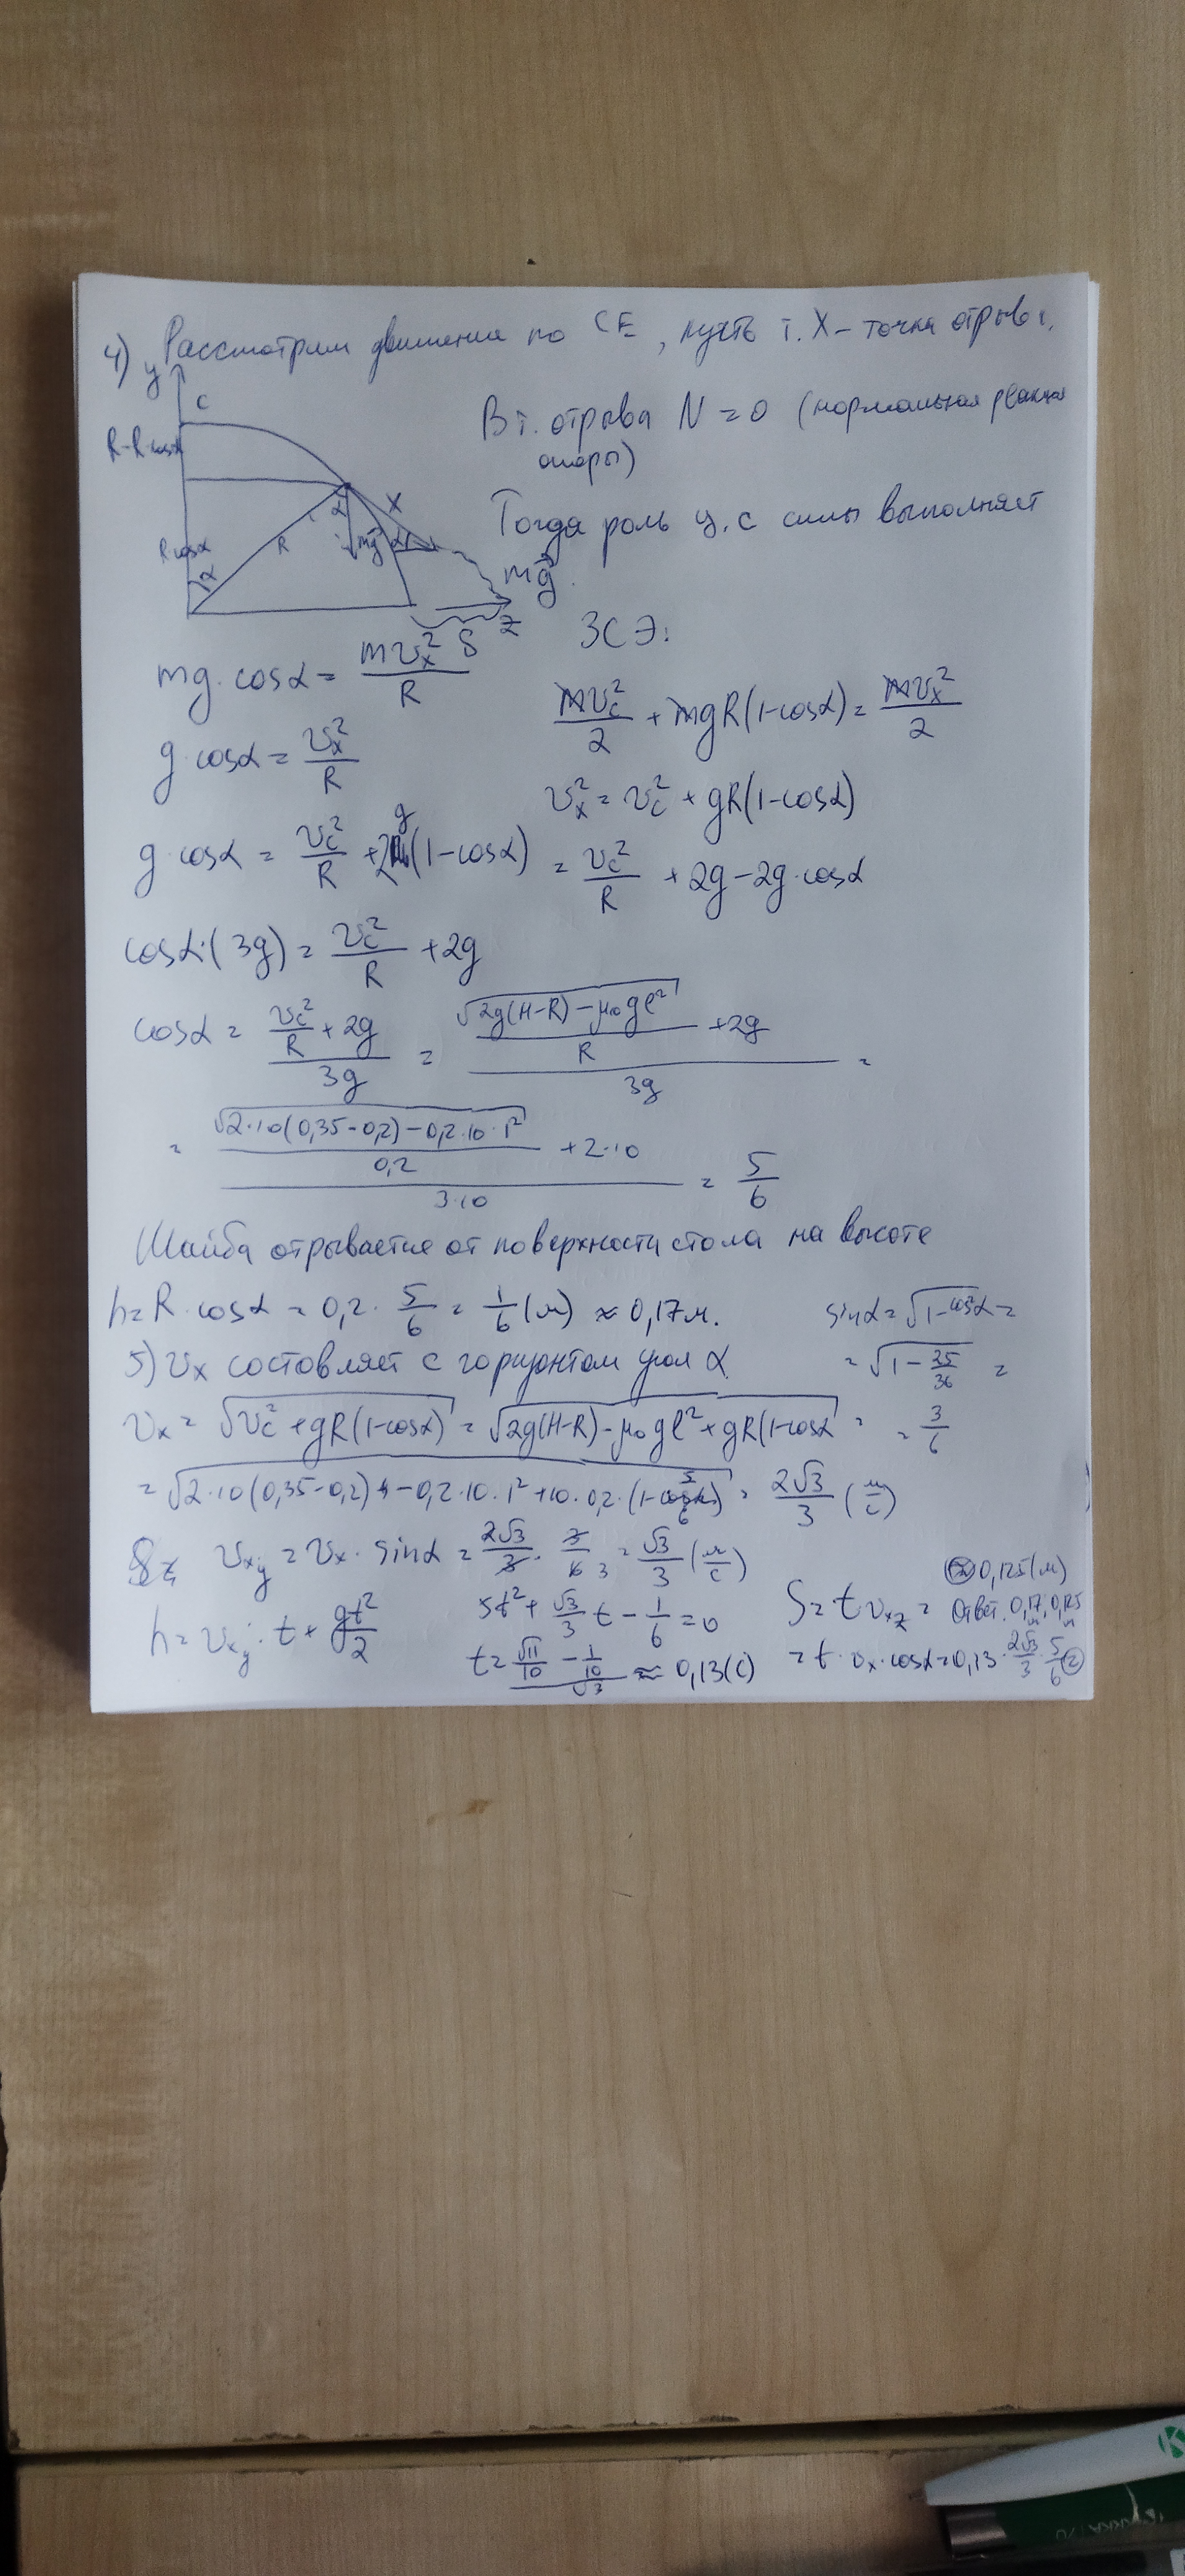 4) Рассмотрим движение по CE, пусть т. X – точка отрыва.
y
C
R-Rcosα
Rcosα
α
R
α
mg
α
X
S
z
В т. отрыва N = 0 (нормальная реакция
опоры)
Тогда роль ц.с силы выполняет
mg.
ЗСЭ:
mg·cosα = mvₓ²/R
mv_c²/2 + mgR(1-cosα) = mvₓ²/2
g·cosα = vₓ²/R
vₓ² = v_c² + gR(1-cosα)
g·cosα = v_c²/R + 2g(1-cosα) = v_c²/R + 2g - 2g·cosα
cosα·(3g) = v_c²/R + 2g
cosα = (v_c²/R + 2g)/3g = (√(2g(H-R) - μ₀gl²)/R + 2g)/3g =
= (√(2·10(0,35-0,2) - 0,2·10·1²)/0,2 + 2·10)/3·10 = 5/6
Шайба отрывается от поверхности стола на высоте
h = R·cosα = 0,2·5/6 = 1/6 (м) ≈ 0,17м.
sinα = √(1-cos²α) =
= √(1 - 35/36) =
= 3/6
5) vₓ составляет с горизонтом угол α
vₓ = √(v_c² + gR(1-cosα)) = √(2g(H-R) - μ₀gl² + gR(1-cosα) =
= √(2·10(0,35-0,2) - 0,2·10·1² + 10·0,2·(1-5/6)) = 2√3/3 (м/с)
v_xy = vₓ·sinα = 2√3/3 · 3/6 = √3/3 (м/с)
h = v_xy·t + gt²/2
5t² + √3/3 t - 1/6 = 0
t = √11/10 - 1/10 / √3 ≈ 0,13(с)
S = t v_xz =
= t·vₓ·cosα = 0,13·2√3/3·5/6
≈ 0,125(м)
Ответ. 0,17м, 0,125м